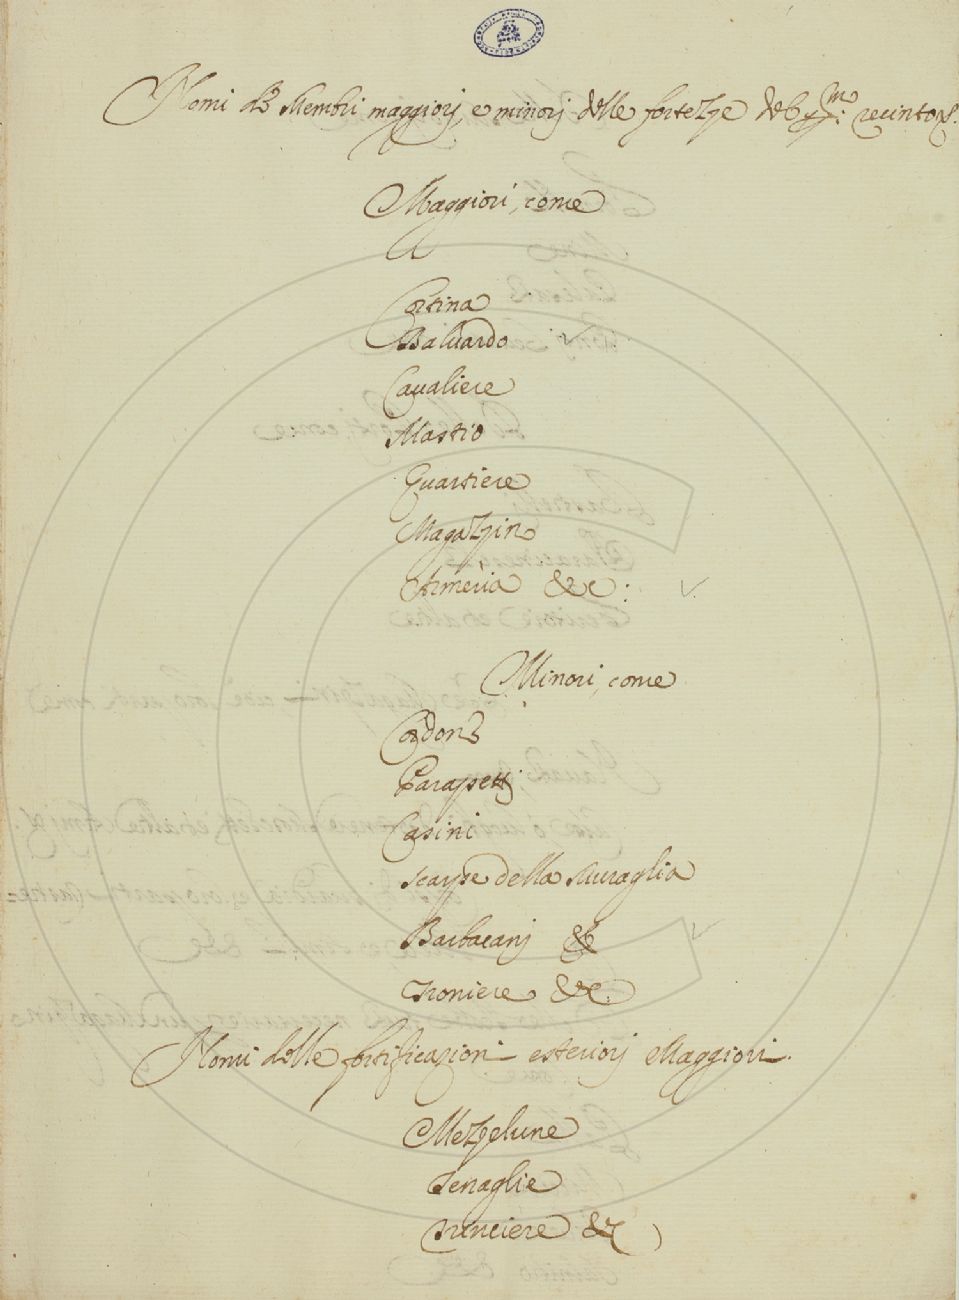 Nomi di Membri maggiorj, e minorj delle fortezze del pmo: recinto
Maggiori, come
Cortina
Baluardo
Caualiere
Mastio
Quartiere
Magazzin
Armeria &c:
Minori, come
Cordoni
Parapettj
Casini
Scarpe della Muraglia
Barbacanj
Troniere &c.
Nomi delle fortificazioni esteriorj Maggiori.
Mezzelune
Tenaglie
Trinciere &c